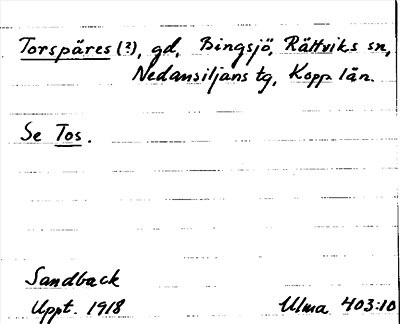 Torspäres (?), gd, Bingsjö, Rättviks sn,
Nedansiljans tg, Kopp. län.
Se Tos.
Sandback
Uppt. 1918
Ulma 403:10